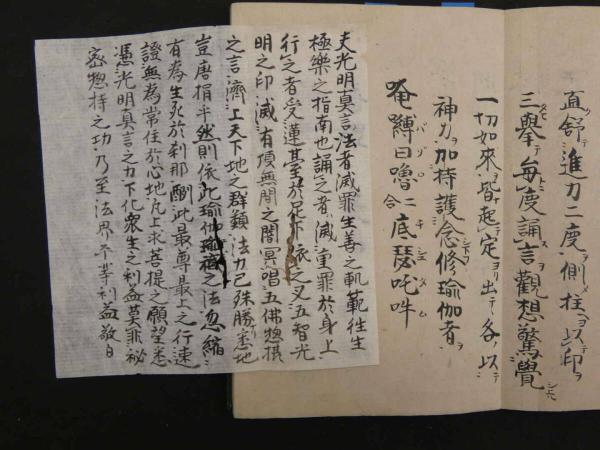 直舒進力二度側拄以印
三舉每度誦言觀想驚覺
一切如來皆起定出テ各以
神力加持護念修瑜伽者
唵縛日嚕二合底瑟吒吽
夫光明真言法者滅罪生善之軌範往生
極樂之指南也誦之者滅重罪於身上
行之者受蓮臺於足下依之又五智光
明之印滅有頂無間之闇冥唱五佛惣摂
之言濟上天下地之群類法力已殊勝悉地
豈唐捐半然則依此瑜伽之法忽縮
有為生死於刹那酬此最尊最上之行速
證無為常住於心地凡上求菩提之願望悉
憑光明真言之力下化衆生之利益莫非秘
密惣持之功乃至法界平等利益敬白